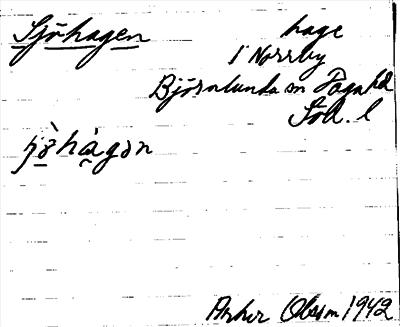 Sjöhagen hage
i Norrby
Björnlunda sn Daga hd
Söd. l
Olsson 1942